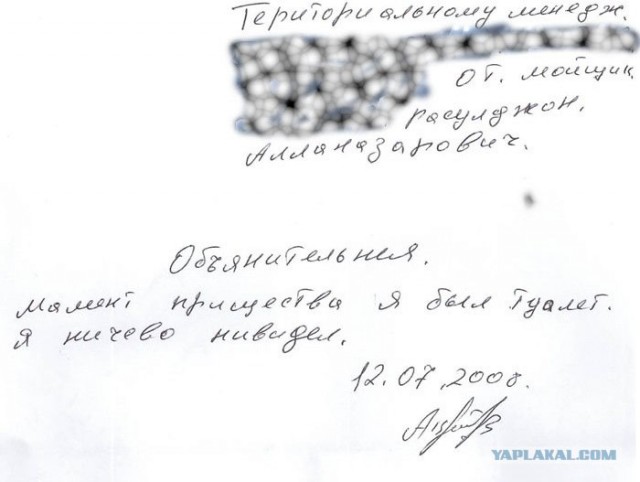 Териториальному менедж.
от. мойщик
расулджон.
Алланазарович.
Объянительная.
Мамент прищества я был туалет.
я ничево нивидел.
12.07.2008.
YAPLAKAL.COM